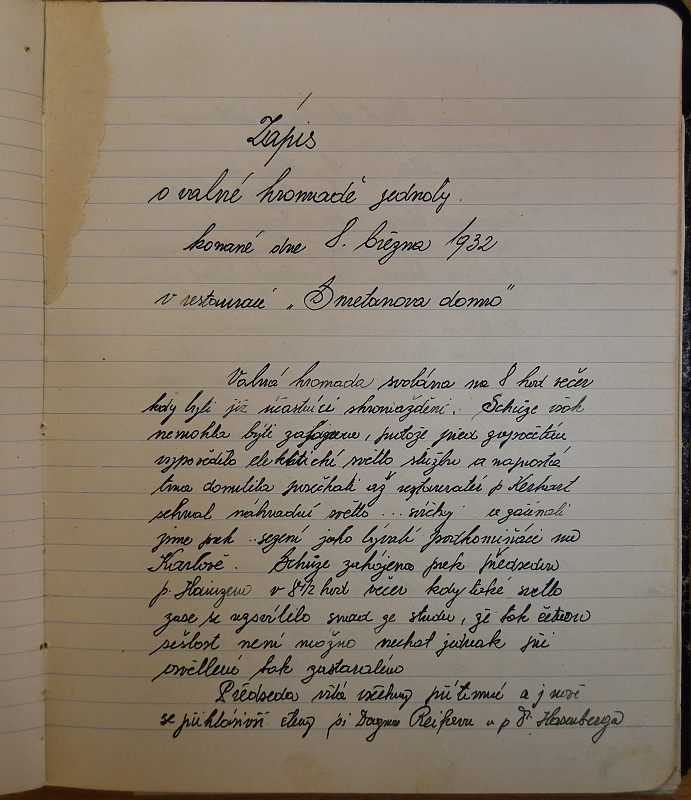 Zápis
o valné hromadě jednoty.
konané dne 8. března 1932
v restauraci „Smetanova domu"
Valná hromada svolána na 8 hod večer
kdy byli již účastníci shromážděni. Schůze však
nemohla býti zahájena, protože před započetím
vypovědělo elektrické světlo službu a naprostá
tma donutila počkati až restauratér p Kerhart
sehnal náhradní světlo ... svíčky a začínali
jsme pak sezení jako bývalí podkominíci na
Karlově. Schůze zahájena pak předsedou
p. v 8 1/2 hod večer kdy také světlo
zase se rozsvítilo snad ze studu, že tak četnou
sešlost není možno nechat jednak při
osvětlení tak zastaralém
Předseda vítá všechny přítomné a j nově
se přihlásivší členy sl Dagmar a p Dr.